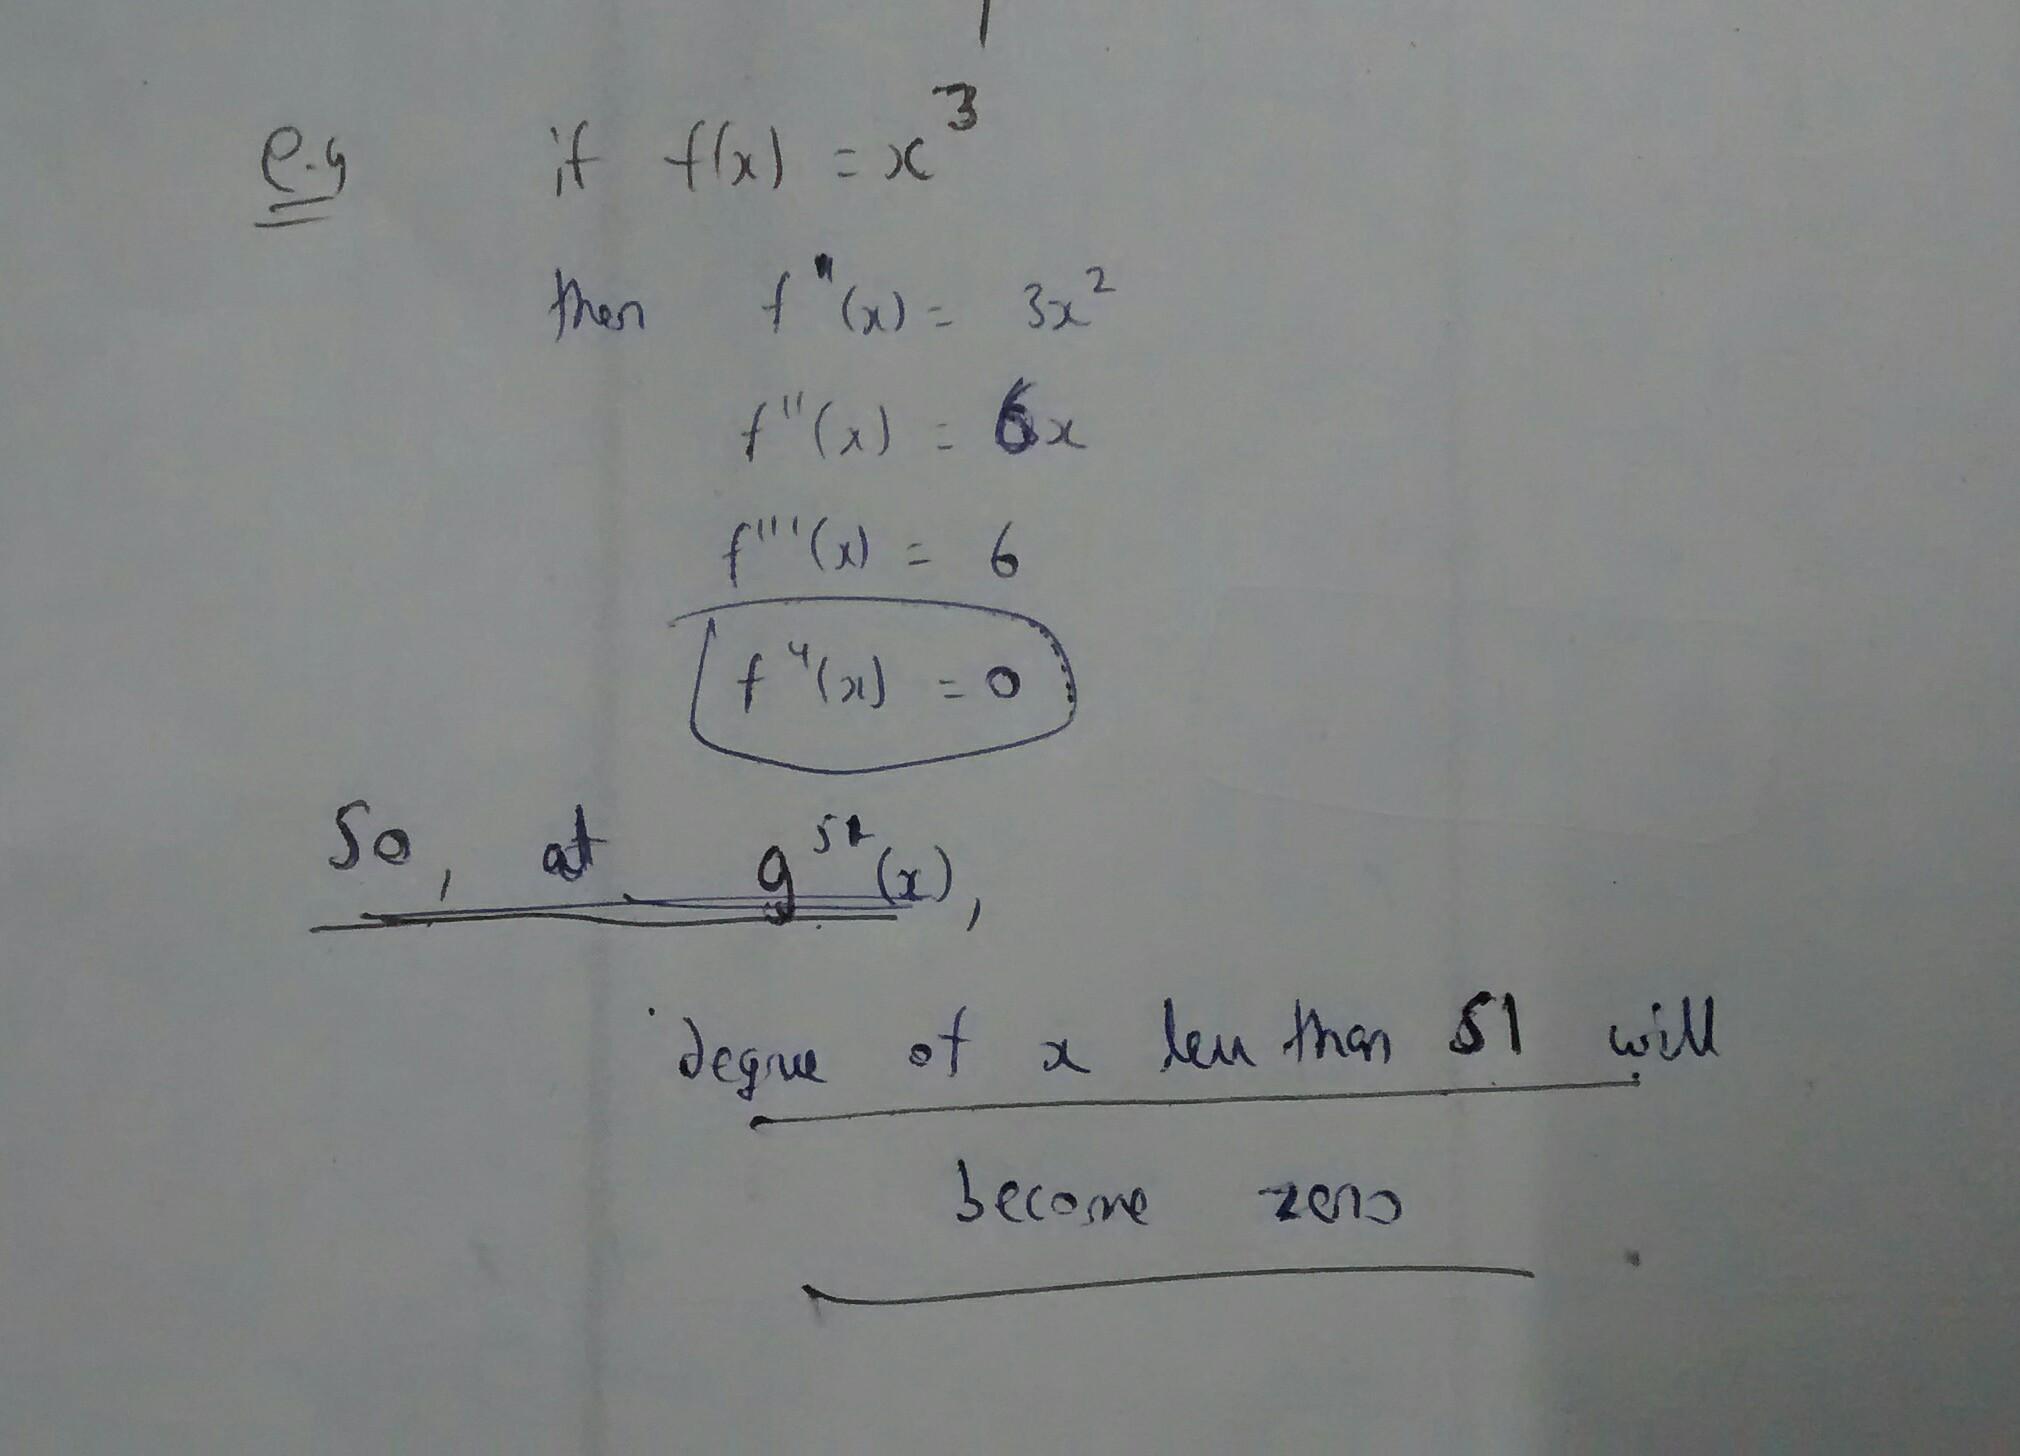 e.g if f(x) = x³
then f"(x) = 3x²
f"(x) = 6x
f'''(x) = 6
f⁴(x) = 0
So, at g (x),
degree of x less than 51 will
become zero